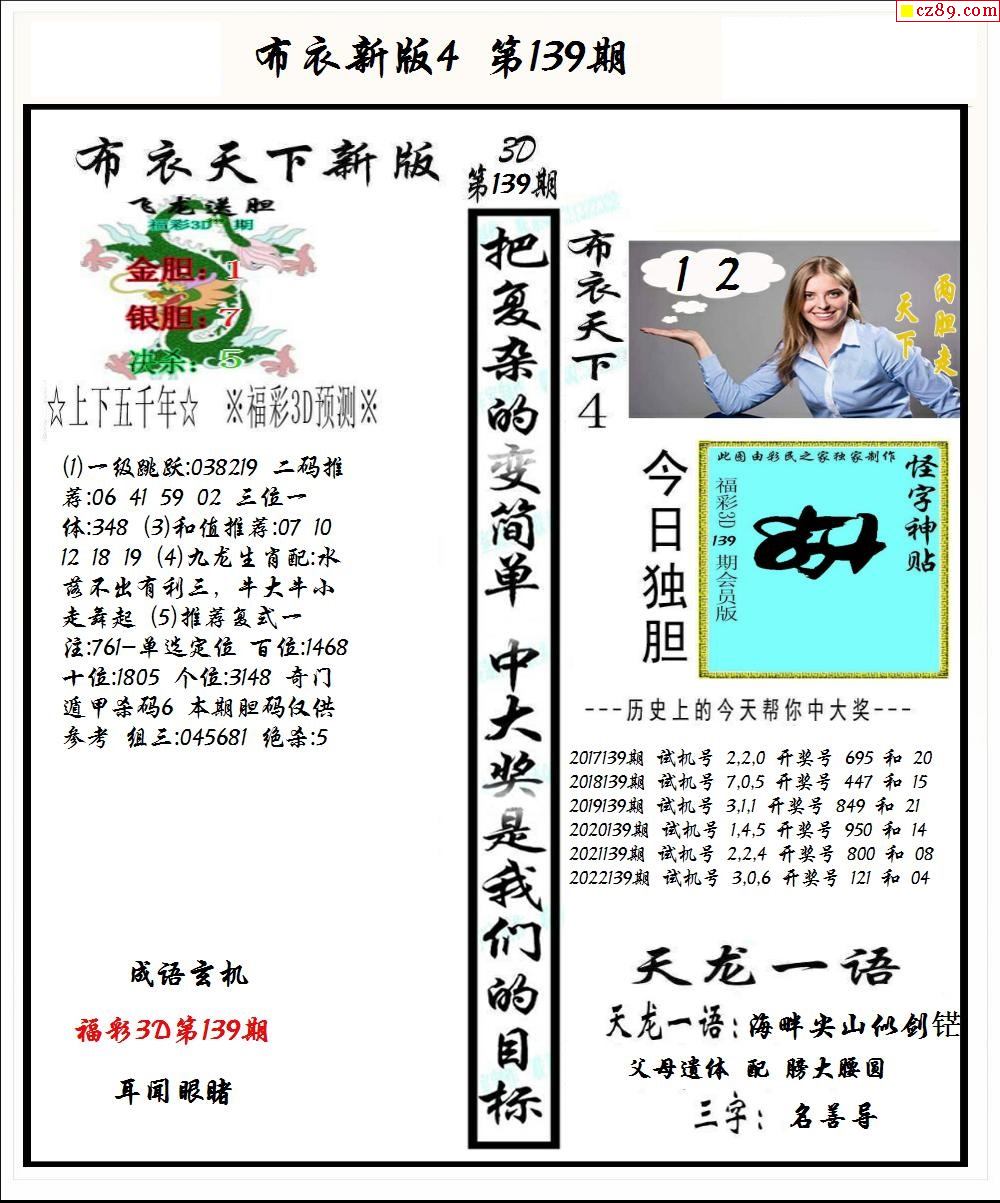 cz89.com
布衣新版4 第139期
布衣天下新版
飞龙送胆
福彩3D 期
金胆：1
银胆：7
决杀：5
☆上下五千年☆ ※福彩3D预测※
(1)一级跳跃:038219 二码推
荐:06 41 59 02 三位一
体:348 (3)和值推荐:07 10
12 18 19 (4)九龙生肖配:水
落不出有利三，牛大牛小
走舞起 (5)推荐复式一
注:761-单选定位 百位:1468
十位:1805 个位:3148 奇门
遁甲杀码6 本期胆码仅供
参考 组三:045681 绝杀:5
成语玄机
福彩3D第139期
耳闻眼睹
3D
第139期
把复杂的变简单 中大奖是我们的目标
布衣天下4
1 2
两胆走
天下
今日独胆
此图由彩民之家独家制作
怪字神贴
福彩3D 139 期会员版
---历史上的今天帮你中大奖---
2017139期 试机号 2,2,0 开奖号 695 和 20
2018139期 试机号 7,0,5 开奖号 447 和 15
2019139期 试机号 3,1,1 开奖号 849 和 21
2020139期 试机号 1,4,5 开奖号 950 和 14
2021139期 试机号 2,2,4 开奖号 800 和 08
2022139期 试机号 3,0,6 开奖号 121 和 04
天龙一语
天龙一语：海畔尖山似剑铓
父母遗体 配 膀大腰圆
三字： 名善导